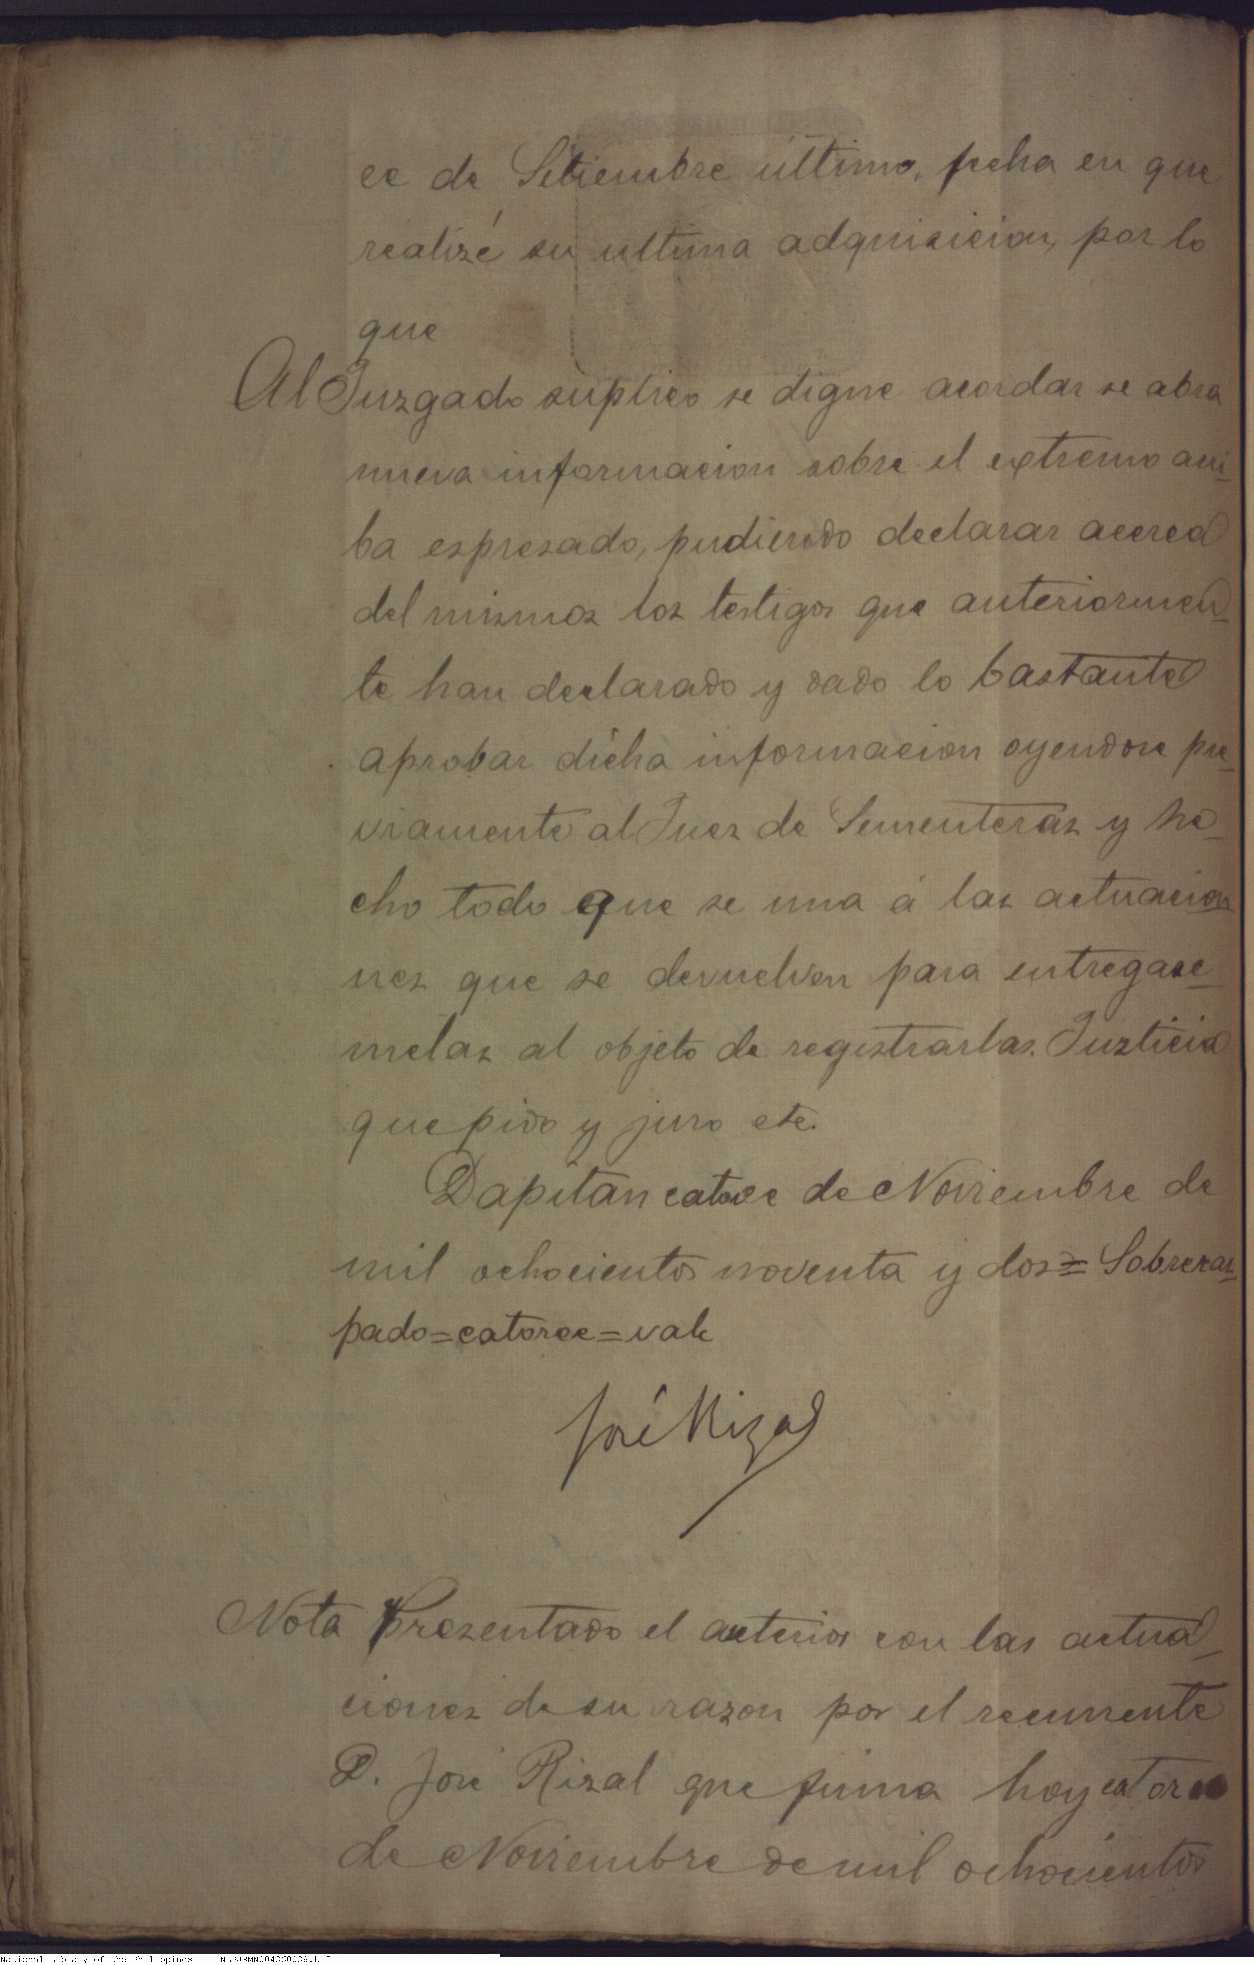 ce de Setiembre último, fecha en que
realizé su ultima adquisicion, por lo
que
Al Juzgado suplico se digne acordar se abra
nueva informacion sobre el extremo arri-
ba espresado, pudiendo declarar acerca
del mismos los testigos que anteriormen-
te han declarado y dado lo bastante
aprobar dicha informacion oyendose pre-
viamente al Juez de Sementeras y he-
cho todo que se una á las actuacio-
nes que se devuelven para entregase-
melas al objeto de registrarlas. Justicia
que pido y juro etc.
Dapitan catorce de Noviembre de
mil ochocientos noventa y dos = Sobreras-
pado = catorce = vale
José Rizal
Nota Presentado el anterior con las actua-
ciones de su razon por el recurrente
D. José Rizal que firma hoy catorce
de Noviembre de mil ochocientos
National Library of the Philippines